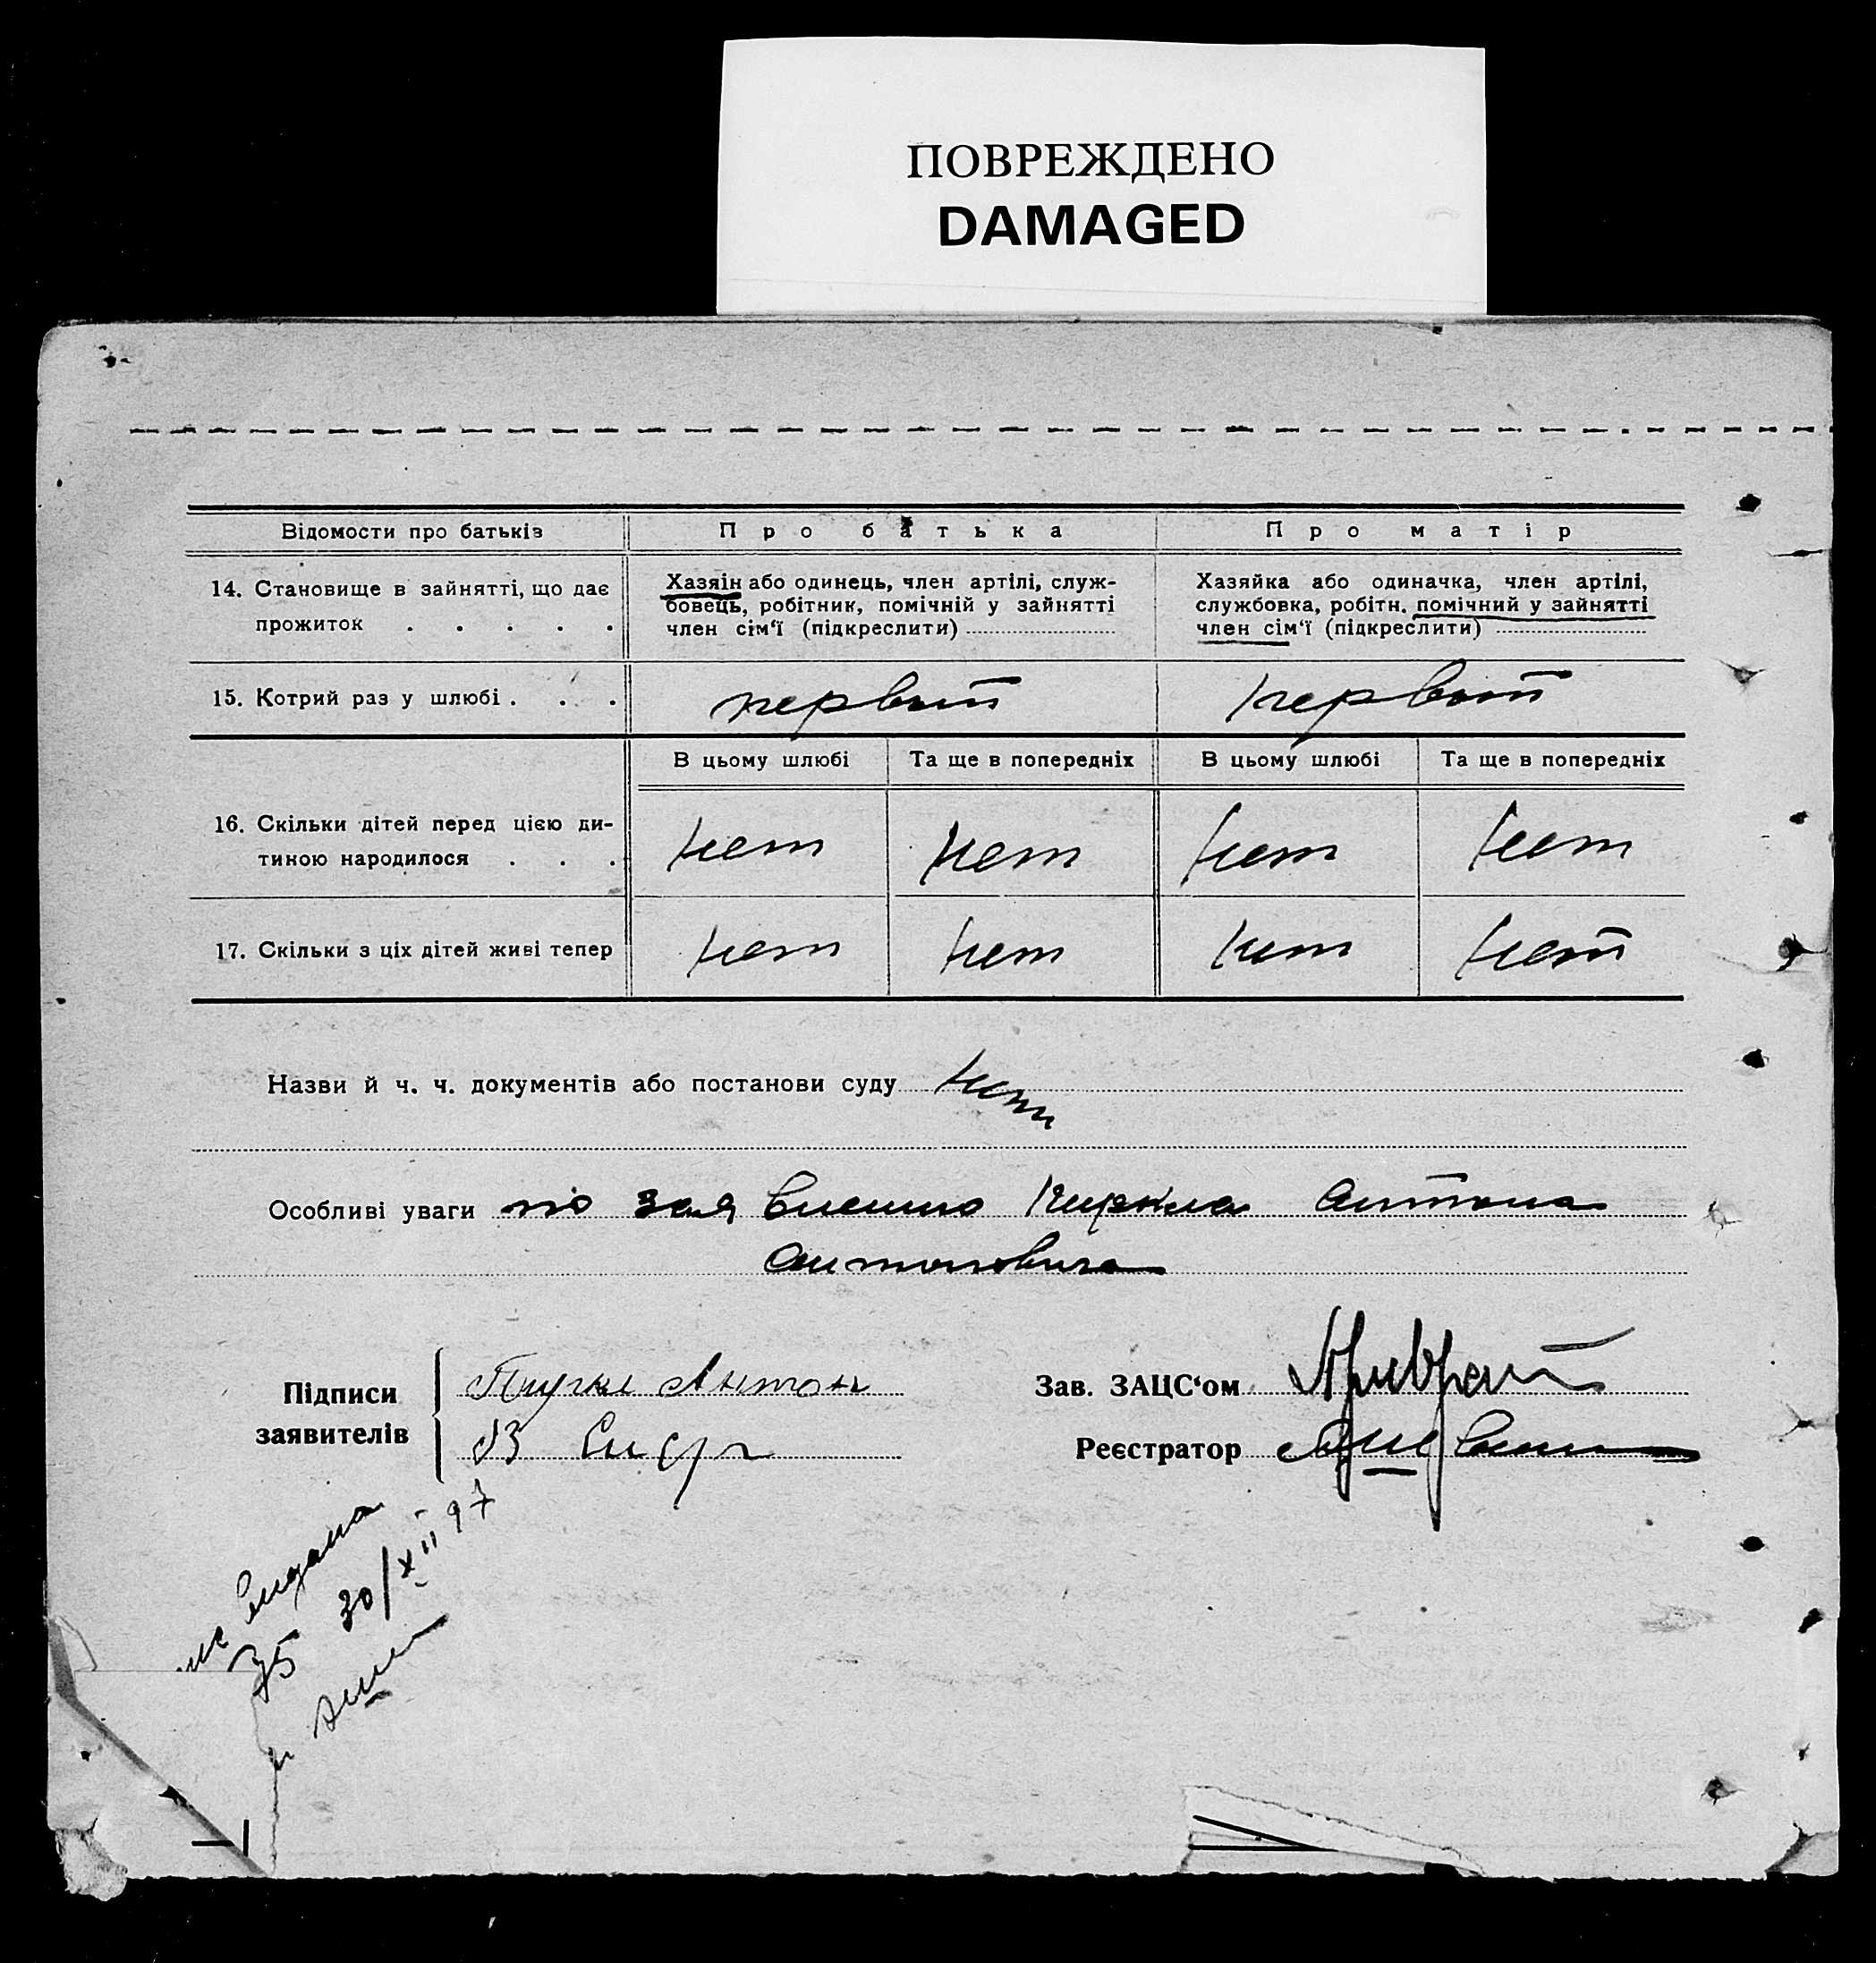 ПОВРЕЖДЕНО
DAMAGED
Відомости про батьків
Про батька
Про матір
14. Становище в зайнятті, що дає
прожиток . . . . .
Хазяін або одинець, член артілі, служ-
бовець, робітник, помічній у зайнятті
член сім‘ї (підкреслити)
Хазяйка або одиначка, член артілі,
службовка, робітн. помічний у зайнятті
член сім‘ї (підкреслити)
15. Котрий раз у шлюбі . . .
первый
первый
В цьому шлюбі
Та ще в попередніх
В цьому шлюбі
Та ще в попередніх
16. Скільки дітей перед цією ди-
тиною народилося . . .
нет
нет
нет
нет
17. Скільки з ціх дітей живі тепер
нет
нет
нет
нет
Назви й ч. ч. документів або постанови суду нет
Особливі уваги по заявлению Антона
Антоновича
Підписи
заявителів
Антон
Зав. ЗАЦС‘ом
Реєстратор
выдана
35 30/XII 97